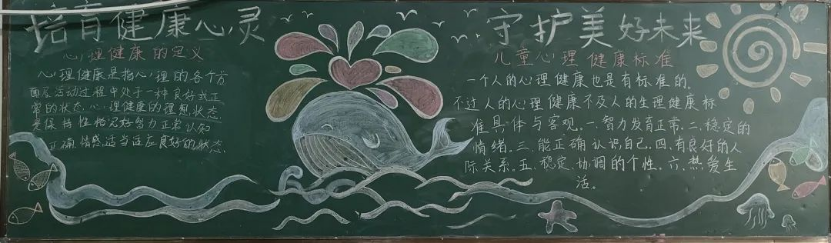 培育健康心灵
守护美好未来
心理健康的定义
心理健康是指心理的各个方
面及活动过程中处于一种良好或正
常的状态。心理健康的理想状态
是保持性格完好、智力正常、认知
正确、情感适当
良好的状态。
儿童心理健康标准
一个人的心理健康也是有标准的。
不过人的心理健康不及人的生理健康标
准具体与客观。一、智力发育正常、二、稳定的
情绪。三、能正确认识自己。四、有良好的人
际关系。五、稳定、协调的个性。六、热爱生
活。